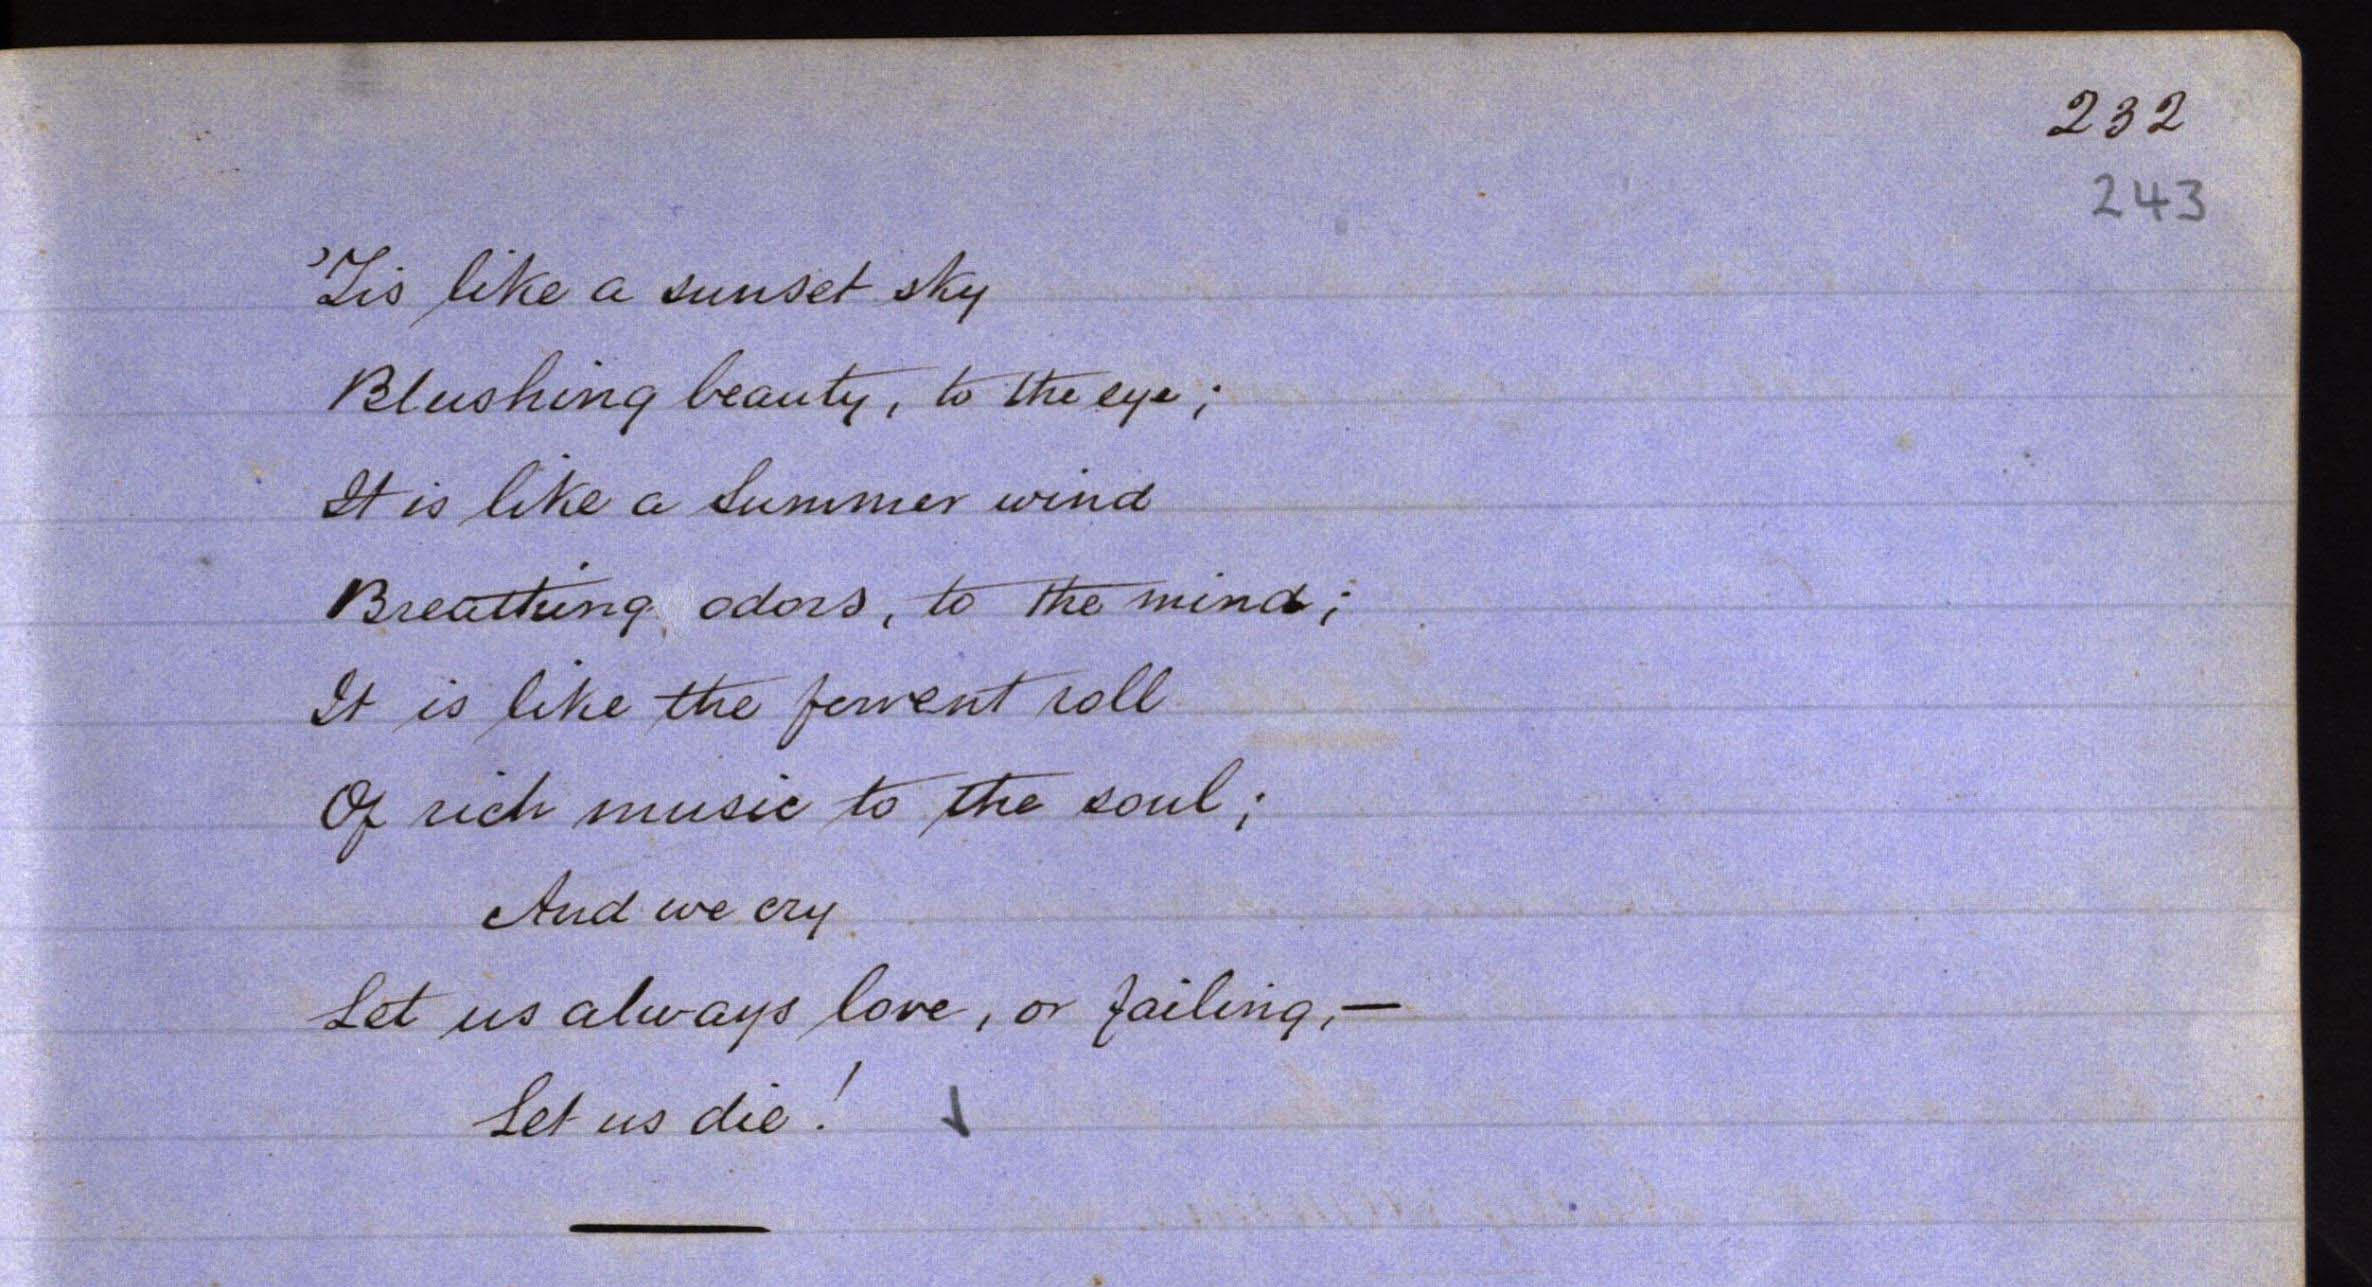 232
243
'Tis like a sunset sky
Blushing beauty, to the eye;
It is like a Summer wind
Breathing odors, to the mind;
It is like the fervent roll
Of rich music to the soul;
And we cry
Let us always love, or failing,—
Let us die!